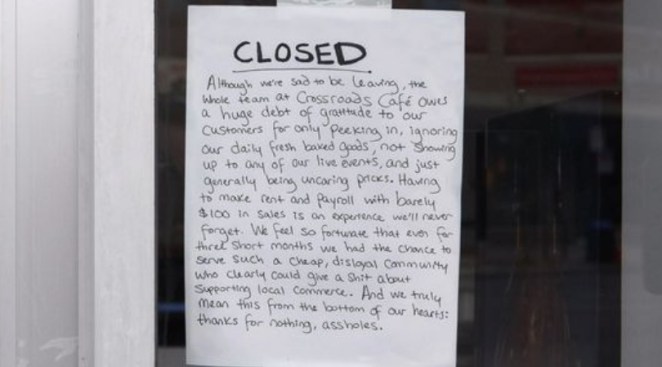 CLOSED
Although we're sad to be leaving, the
whole team at Crossroads Café owes
a huge debt of gratitude to our
customers for only peeking in, ignoring
our daily fresh baked goods, not showing
up to any of our live events, and just
generally being uncaring pricks. Having
to make rent and payroll with barely
$100 in sales is an experience we'll never
forget. We feel so fortunate that even for
three short months we had the chance to
serve such a cheap, disloyal community
who clearly could give a shit about
supporting local commerce. And we truly
mean this from the bottom of our hearts:
thanks for nothing, assholes.